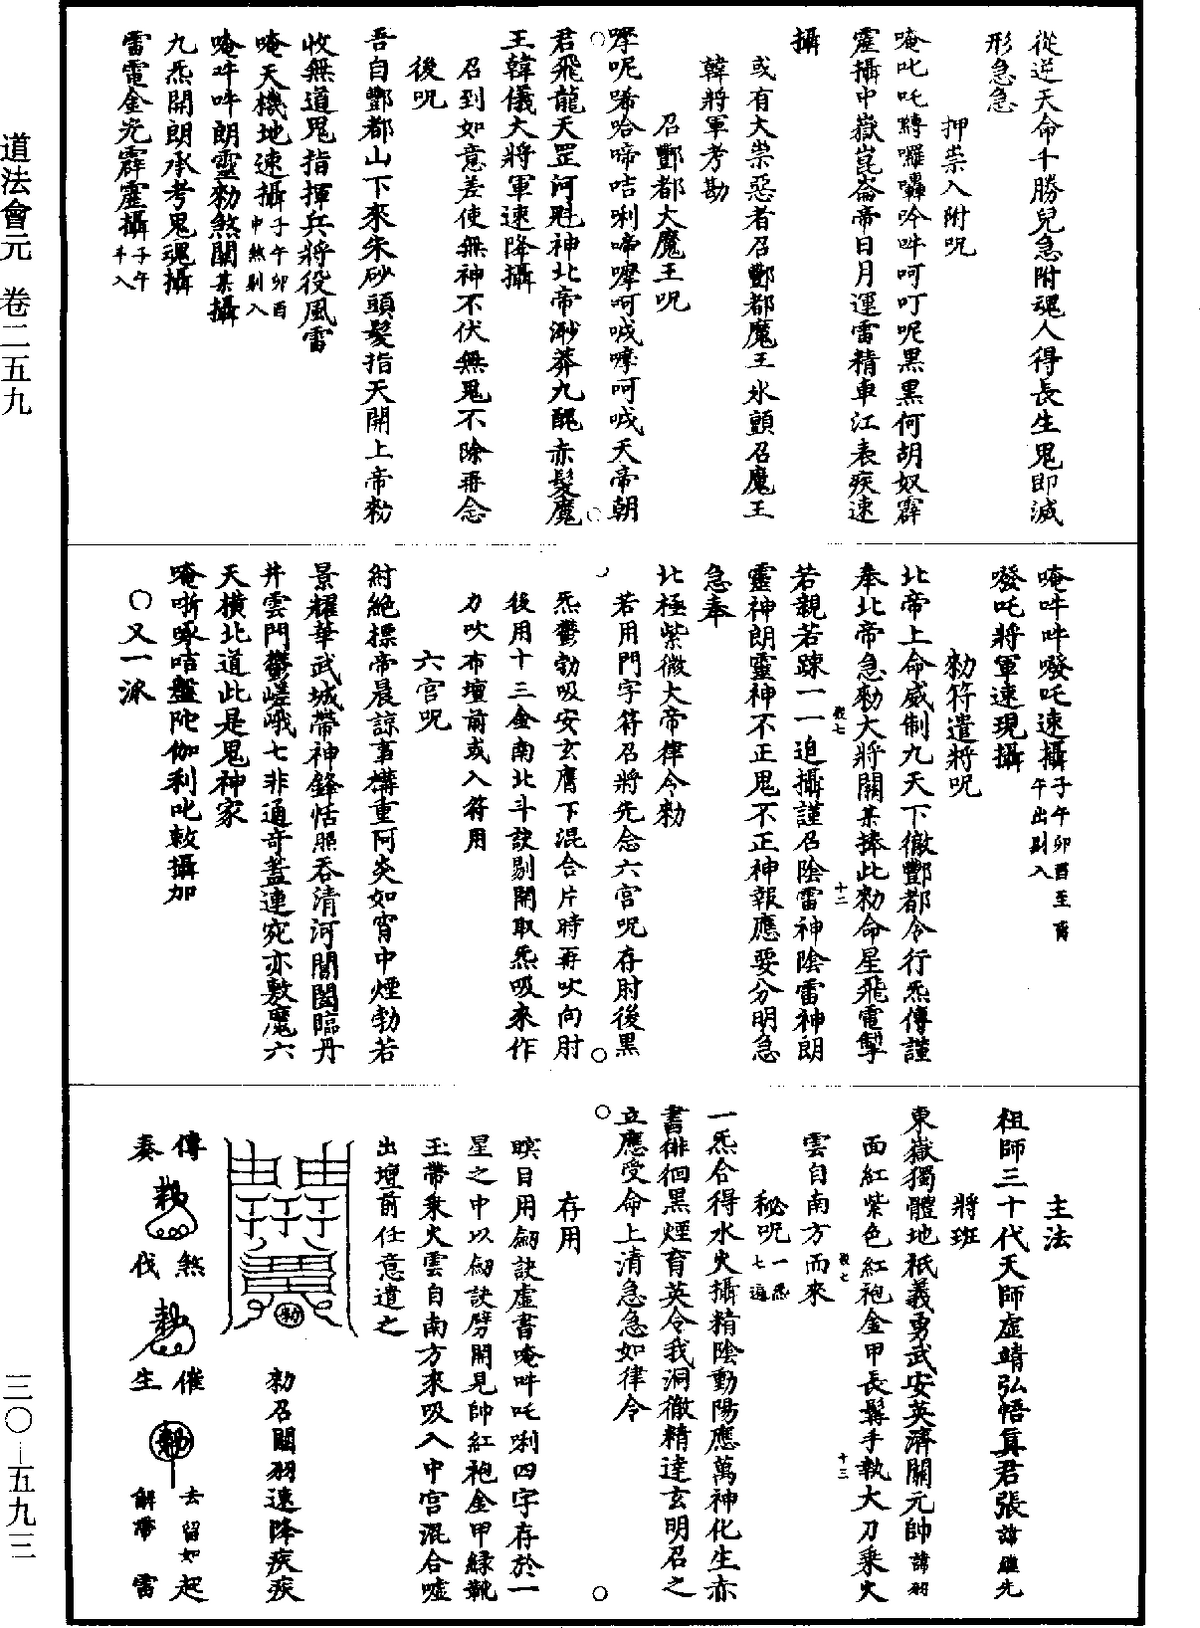 道法會元　卷二五九
三〇—五九三
從逆天命千勝兒急附魂人得長生鬼即滅
形急急
押祟入附呪
唵吒吒縛囉囀唥吽呵叮呢黑黑何胡奴霹
靂攝中嶽崑崙帝日月運雷精車江表疾速
攝
或有大祟惡者召酆都魔王永顫召魔王
韓將軍考勘
召酆都大魔王呪
嚤呢唏哈啼咭唎啼嚤呵唬嚤呵唬天帝朝
君飛龍天罡河魁神北帝渺莽九醜赤髮魔
王韓儀大將軍速降攝
召到如意差使無神不伏無鬼不除再念
後呪
吾自酆都山下來朱砂頭髮指天開上帝勑
收無道鬼指揮兵將役風雷
唵天機地速攝子午卯酉中煞剔入
唵吽吽朗靈勑煞關某攝
九炁開朗承考鬼魂攝
雷電金光霹靂攝子午斗入
唵吽吽㗶吒速攝子午卯酉至酉午出剔入
㗶吒將軍速現攝
勑符遣將呪
北帝上命威制九天下徹酆都令行炁傳謹
奉北帝急勑大將關某捧此勑命星飛電掣
若親若踈一一追攝謹召陰雷神陰雷神朗
靈神朗靈神不正鬼不正神報應要分明急
急奉
北極紫微大帝律令勑
若用門字符召將先念六宮呪存肘後黑
炁鬱勃吸安玄膺下混合片時再吹向肘
後用十三金南北斗訣剔開取炁吸來作
力吹布壇前或入符用
六宮呪
紂絕標帝晨諒事構重阿炎如宵中煙勃若
景耀華武城帶神鋒恬照吞清河閶闔臨丹
井雲門鬱嵯峨七非通奇蓋連宛亦敷魔六
天橫北道此是鬼神家
唵哳啄咭盤陀伽利叱敕攝加
〇又一派
主法
祖師三十代天師虛靖弘悟真君張諱繼先
將班
東嶽獨體地祇義勇武安英濟關元帥諱羽
面紅紫色紅袍金甲長髯手執大刀乘火
雲自南方而來
秘呪一炁七遍
一炁合得水火攝精陰動陽應萬神化生赤
書徘徊黑煙育英令我洞徹精達玄明召之
立應受命上清急急如律令
存用
瞑目用劒訣虛書唵吽吒唎四字存於一
星之中以劒訣劈開見帥紅袍金甲緑靴
玉帶乘火雲自南方來吸入中宮混合噓
出壇前任意遣之
勑
勑召關羽速降疾疾
傳奏
煞伐
催生
去留如起
解帶雷